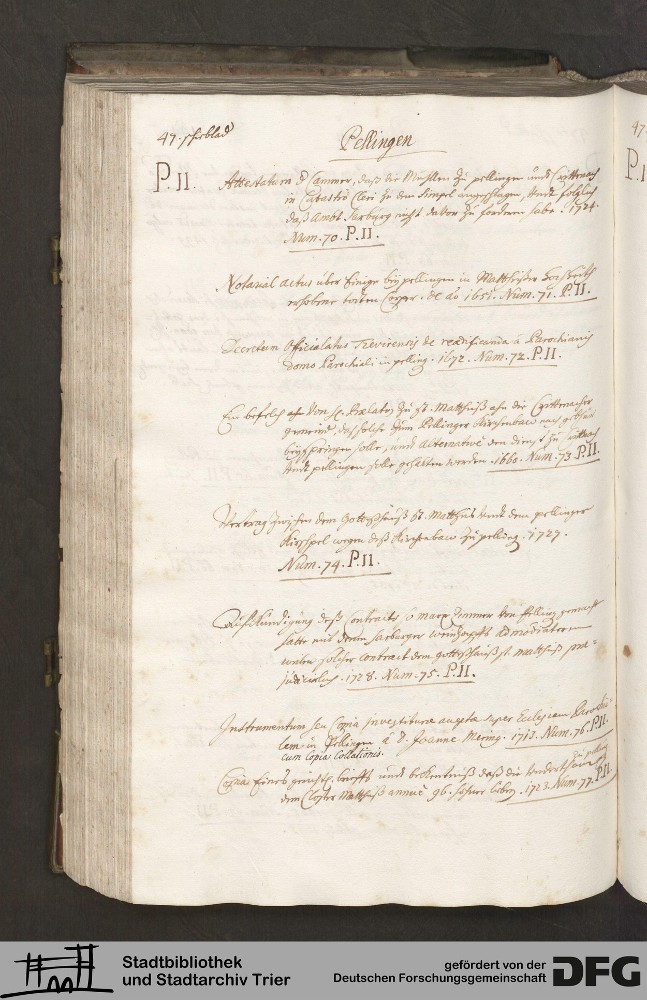 47. schublad
Pellingen
P.II. Attestatum d Cammer, daß die Mühllen zu pellingen undt Crittenach
in Catastro Cleri zu dem Simpel angeschlagen, undt folglich
daß Ambt Sarburg nicht davon zu forderen habe. 1724.
Num. 70. P.II.
Notarial actus über Einige bey pellingen in Mattheiser
erhobene de aō 1651. Num. 71. P.II.
Decretum Officialatus Trevirensis de reaedificanda a Parochianis
domo Parochiali in pelling. 1692. Num. 72. P.II.
Ein befelch Von H. Prelaten zu St. Mattheiß ahn die Crittenacher
gemeind, daß solche dem Pellinger Kirchenbaw nach
beyspringen solle, und alternativè den dienst zu Crittenach
undt pellingen solle gehalten werden. 1660. Num. 73. P.II.
Vertrag zwischen dem Gottshauß St. Mattheis undt dem pellinger
Kirspel wegen deß Kirchenbaw zu pelling. 1727.
Num. 74. P.II.
Auffkündigung deß Contracts, so Marx Zimmer von pelling gemacht
hatte mit denen Sarburger
weilen solcher contract dem gottshauß st. Mattheiß præ-
judicirlich. 1728. Num. 75. P.II.
Instrumentum seu Copia Investituræ super Ecclesiam Parochia-
lem in Pellingen à D. Joanne Mering. 1717. Num. 76. P.II.
cum Copia Collationis.
Copia Eines gerichtl. undt bekentnuß daß die zu pelling
dem Closter Mattheiß annuè 96. 1723. Num. 77. P.II.
47
P.I
Stadtbibliothek
und Stadtarchiv Trier
gefördert von der
Deutschen Forschungsgemeinschaft
DFG